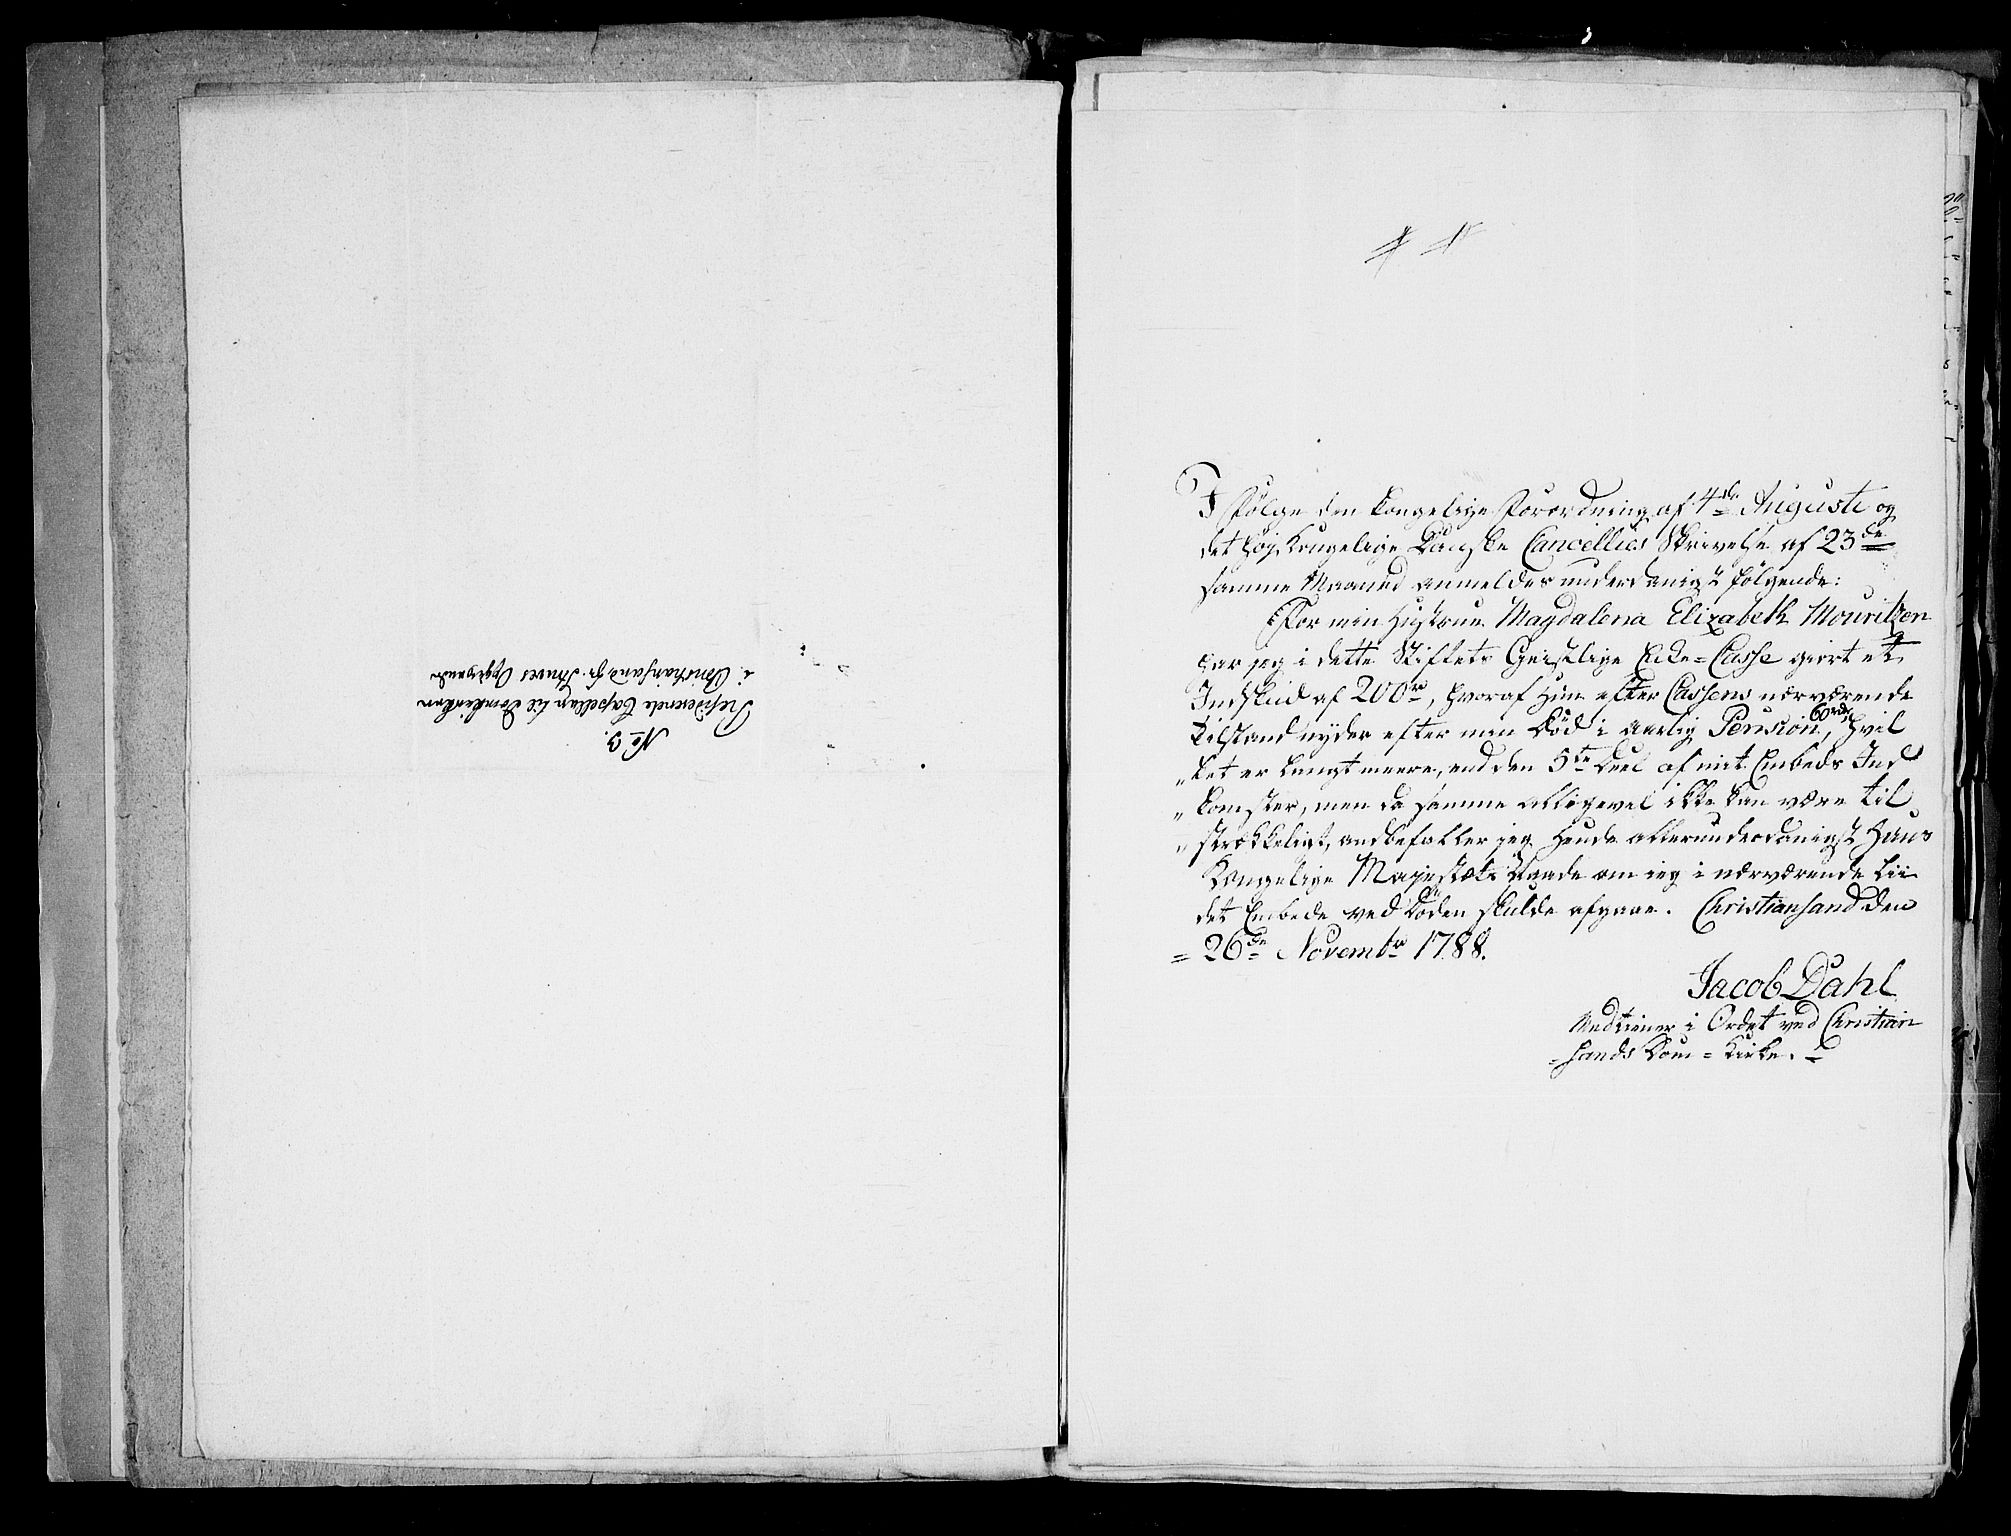 No 3.
Residerende Capellan til Domkirken
i Christiansand Hr. Opgivende
I følge den Kongelige Forordning af 4de Augusti og
det høj Kongelige Danske Cancellies Skrivelse af 23de
samme Maaned anmeldes underdanigst følgende:
For min Hustrue Magdalena Elizabeth Mouritzen
har jeg i dette Stiftets Geistlige Enke-Casse giort et
Indskud af 200rd, hvoraf Hun efter Cassens nærværende
Tilstand nyder efter min Død i aarlig Pension 60rdr, hvil
"ket er langt meere, end den 5te Deel af mit Embeds Ind
"komster, men da samme alligevel ikke kan være til
"strækkeligt, andbefaller jeg Hende allerunderdanigst Hans
Kongelige Majestæts Naade om jeg i nærværende lii
det Embede ved Døden skulde afgaae. Christiansand den
= 26de Novembr 1788.
Jacob Dahl
Medtiener i Ordet ved Christian
=sands Dom=Kirke.